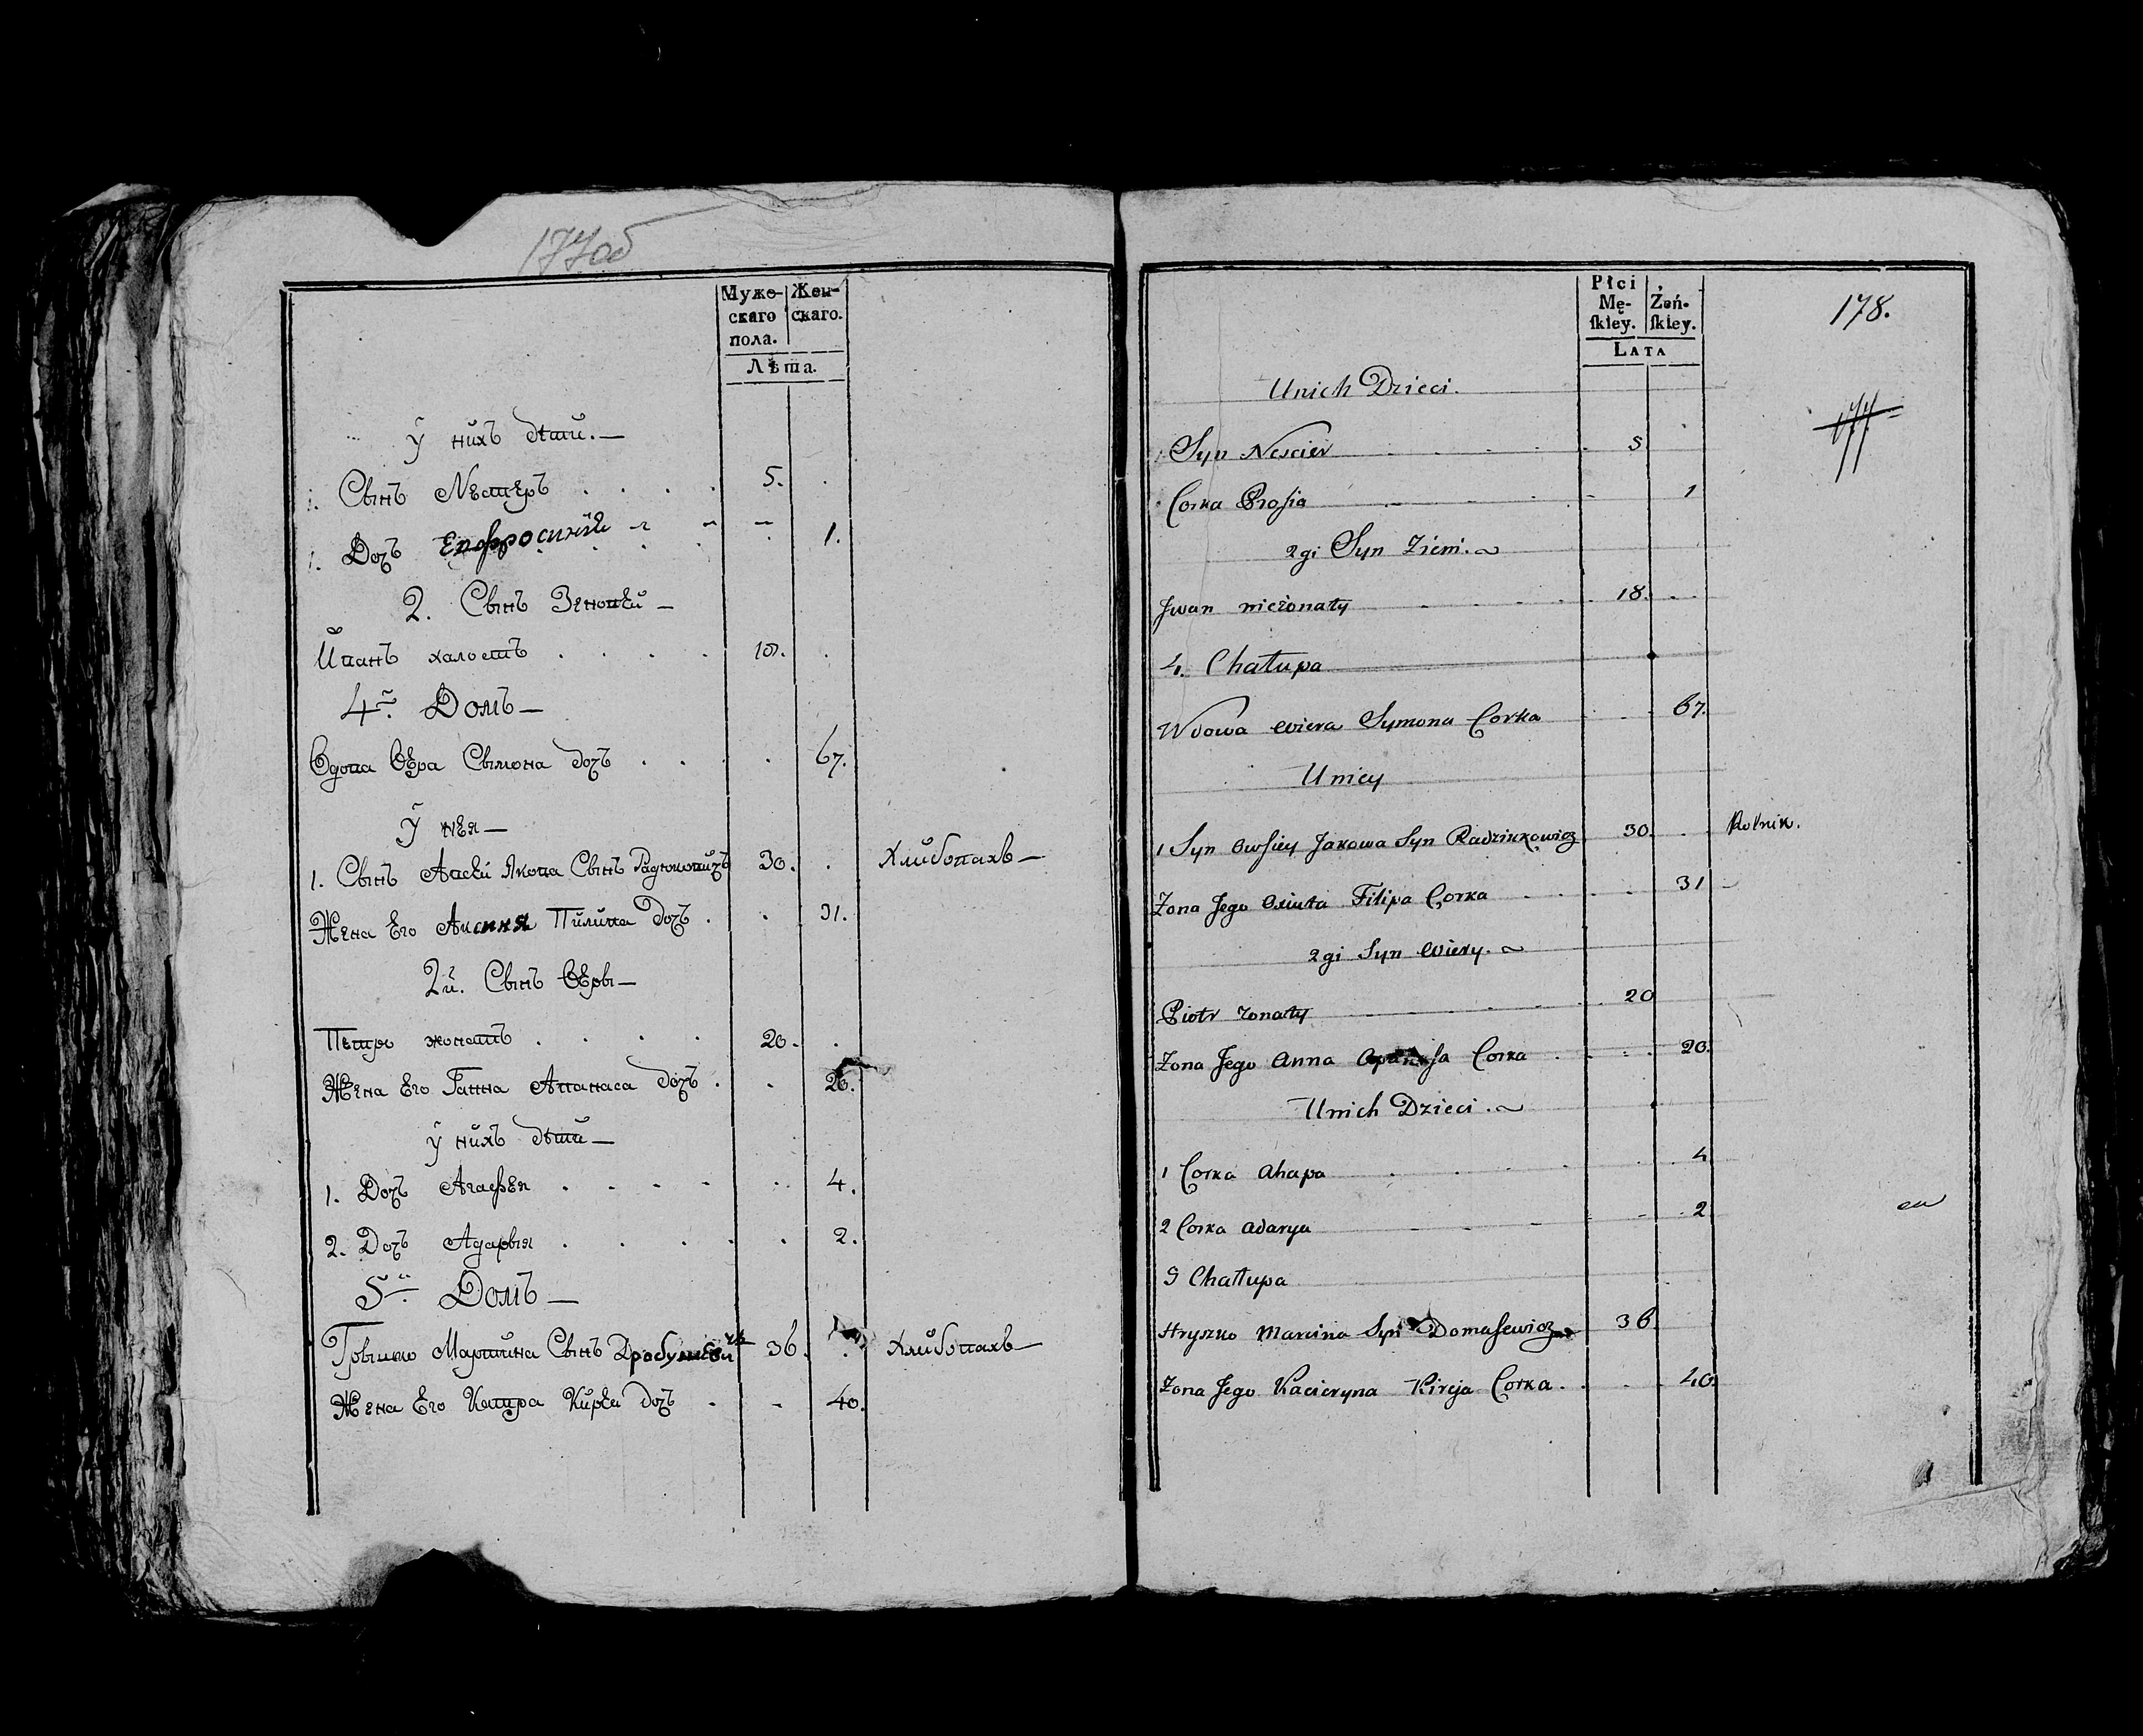 177об
Муже- Жен-
скаго скаго.
пола.
Лѣта.
у нихъ дѣти.—
1. Сынъ Нѣстеръ . . . . 5. .
1. Дочь Епфросинія - - - 1.
2. Сынъ Зеновѣй —
Иванъ халостъ . . . . 18. .
4й. Домъ —
Вдова Вѣра Сымона дочь . . . . 67.
у нея —
1. Сынъ Авсѣй Якова Сынъ Радзюковичъ 30. . Хлибопахъ —
Жена Его Аксиня Пилипа дочь . . 31.
2й. Сынъ Вѣры —
Петро жонатъ . . . . 20. .
Жена Его Ганна Апанаса дочь . . 20.
у нихъ дѣти —
1. Дочь Агафѣя . . . . . 4.
2. Дочь Адарыя . . . . . 2.
5й. Домъ —
Грышко Мартина Сынъ 36. . Хлибопахъ —
Жена Его Катра Кирѣя дочь . - 40.
Płci
Mę- Żeń-
ſkiey. ſkiey.
LATA
178.
177
Unich Dzieci.
1 Syn Nescier . . . . . 5
Corka Prosia - - - 1
2gi Syn Zieni. ~
Jwan nieżonaty . . . . 18. . .
4. Chałupa
Wdowa Wiera Symona Corka . . . 67.
Unicy
1 Syn Owsiey Jakowa Syn Radziukowicz 30. . . Rolnik.
Zona Jego Axiuta Filipa Corka . . . . 31 -
2gi Syn Wiery. ~
Piotr zonaty . . . . 20
Zona Jego Anna Apanasa Corka . . . . 20.
Unich Dzieci. ~
1 Corka Ahapa . . . . . 4
2 Corka Adarya - - - - 2
5 Chałupa
Hryszko Marcina Syn Domasewicz 36
Zona Jego Kacieryna Kireja Corka . . . 40.